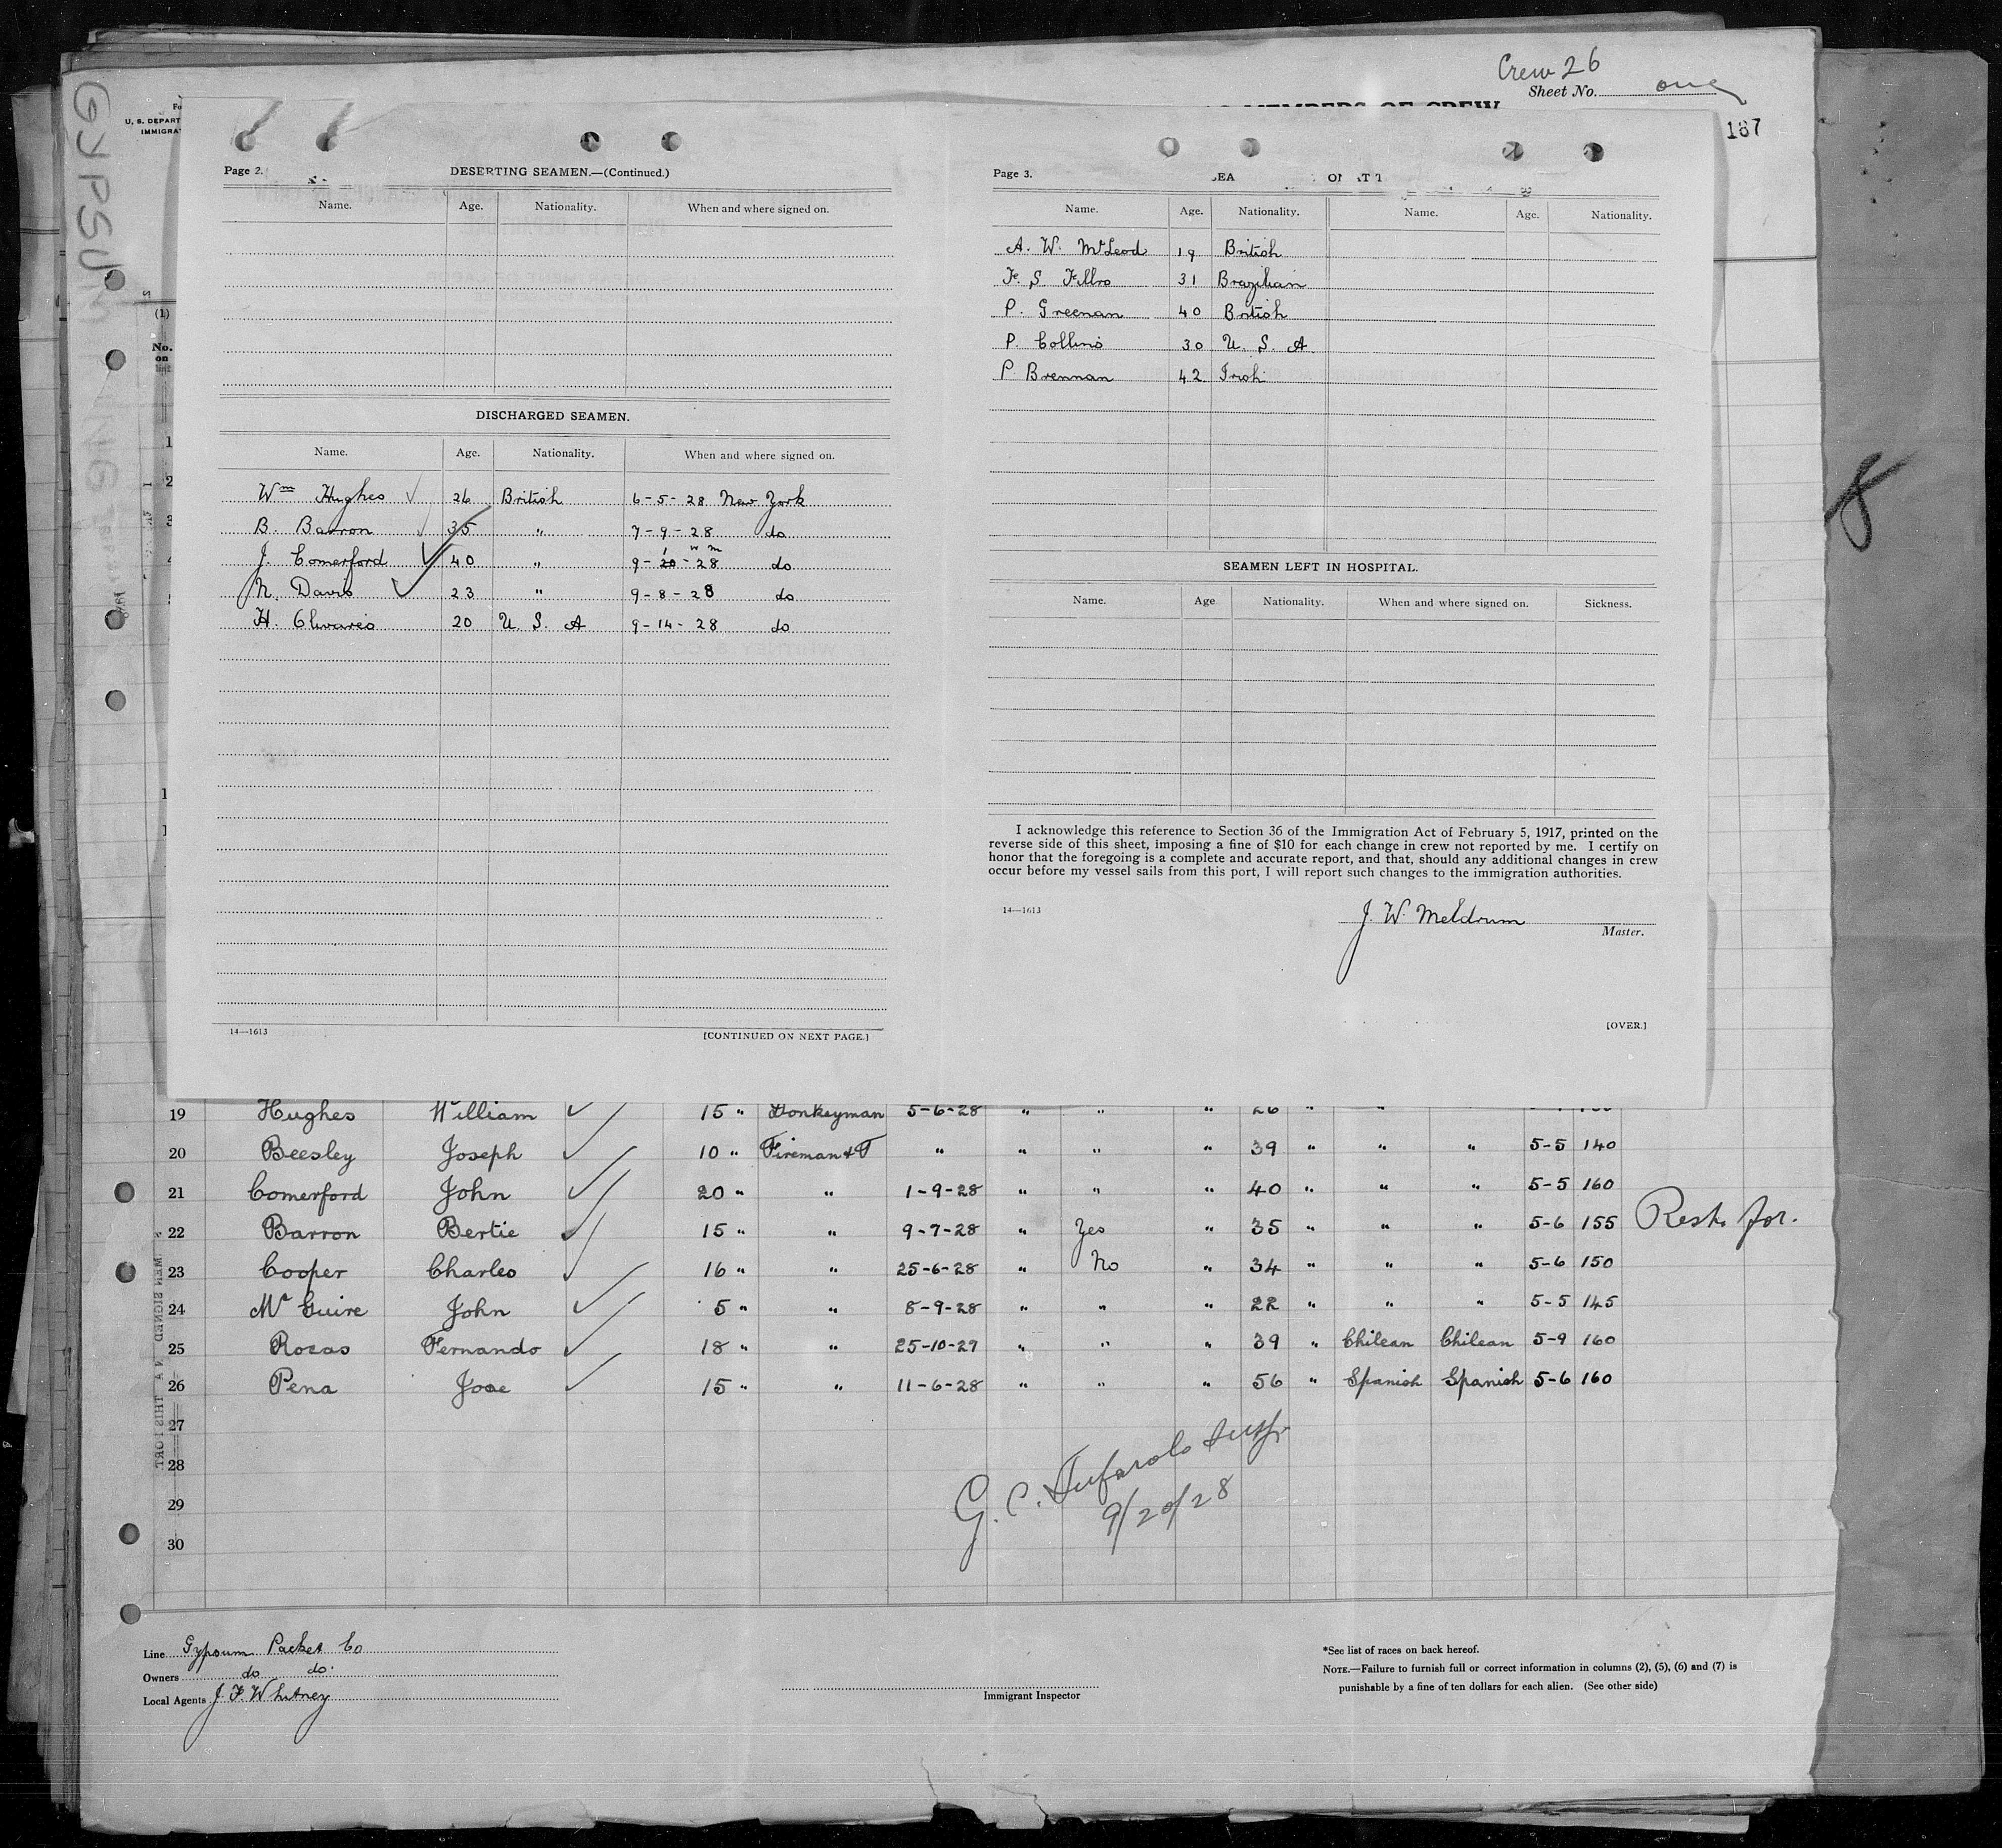 Crew 26
Sheet No. one
MEMBERS OF CREW
187
GYPSUM
U. S. DEPART
IMMIGRA
(1)
No.
on
list
8
Page 2.
DESERTING SEAMEN.—(Continued.)
Name. Age. Nationality. When and where signed on.
DISCHARGED SEAMEN.
Name. Age. Nationality. When and where signed on.
Wm Hughes 26 British 6-5-28 New York
B. Barron 35 " 7-9-28 do
J. Comerford 40 " 9-20-28 do
N. Davis 23 " 9-8-28 do
H. Olivares 20 U. S. A 9-14-28 do
14—1613
[CONTINUED ON NEXT PAGE.]
Page 3.
Name. Age. Nationality. Name. Age. Nationality.
A. W. McLeod 19 British
F. S. Fillro 31 Brazilian
P. Greenan 40 British
P. Collins 30 U. S. A.
P Brennan 42 Irish
SEAMEN LEFT IN HOSPITAL.
Name. Age Nationality. When and where signed on. Sickness.
I acknowledge this reference to Section 36 of the Immigration Act of February 5, 1917, printed on the
reverse side of this sheet, imposing a fine of $10 for each change in crew not reported by me. I certify on
honor that the foregoing is a complete and accurate report, and that, should any additional changes in crew
occur before my vessel sails from this port, I will report such changes to the immigration authorities.
14—1613
J. W. Meldrum
Master.
[OVER.]
19 Hughes William 15 " Donkeyman 5-6-28 " " " 26 " "
20 Beesley Joseph 10 " Fireman & T " " " " 39 " " " 5-5 140
21 Comerford John 20 " " 1-9-28 " " " 40 " " " 5-5 160
22 Barron Bertie 15 " " 9-7-28 " Yes " 35 " " " 5-6 155 Resh. for.
23 Cooper Charles 16 " " 25-6-28 " No " 34 " " " 5-6 150
24 Mc Guire John 5 " " 8-9-28 " " " 22 " " " 5-5 145
25 Rosas Fernando 18 " " 25-10-27 " " " 39 " Chilean Chilean 5-9 160
26 Pena Jose 15 " " 11-6-28 " " " 56 " Spanish Spanish 5-6 160
27
28
29
30
G. C. Tufarolo Insp.
9/20/28
Line Gypsum Packet Co
Owners do do.
Local Agents J F Whitney
Immigrant Inspector
*See list of races on back hereof.
NOTE.—Failure to furnish full or correct information in columns (2), (5), (6) and (7) is
punishable by a fine of ten dollars for each alien. (See other side)